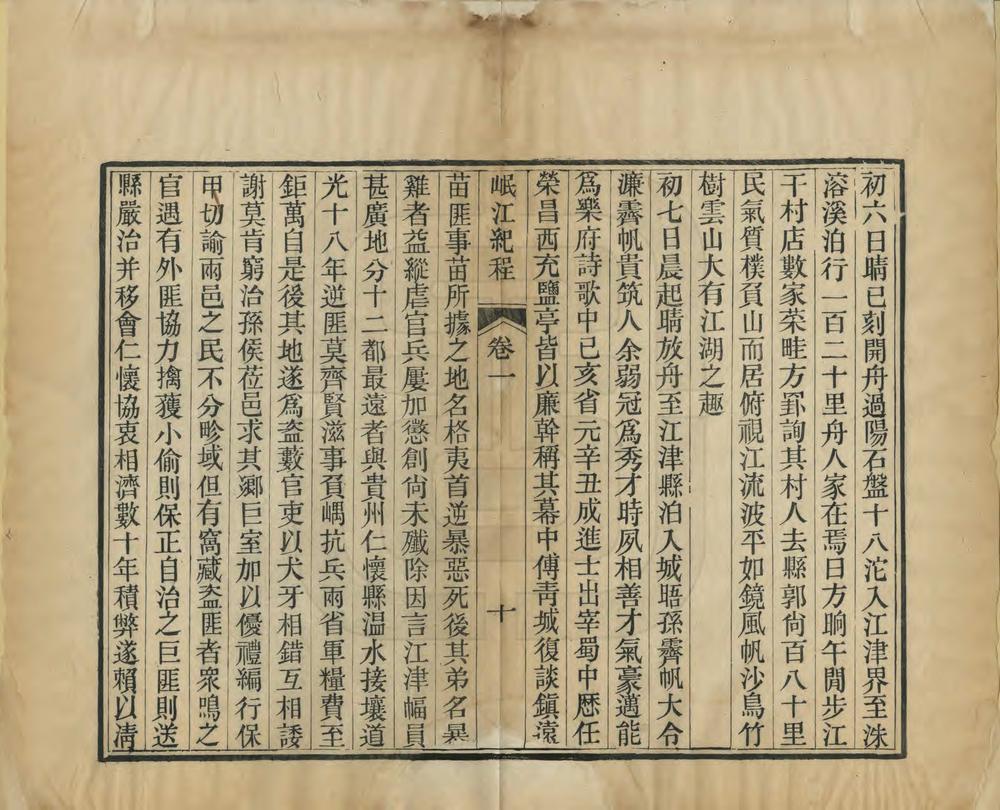 初六日晴巳刻開舟過陽石盤十八沱入江津界至洙
溶溪泊行一百二十里舟人家在焉日方晌午閒步江
干村店數家菜畦方罫詢其村人去縣郭尚百八十里
民氣質樸負山而居俯視江流波平如鏡風帆沙鳥竹
樹雲山大有江湖之趣
初七日晨起晴放舟至江津縣泊入城晤孫霽帆大令
濂霽帆貴筑人余弱冠爲秀才時夙相善才氣豪邁能
爲樂府詩歌中己亥省元辛丑成進士出宰蜀中歷任
榮昌西充鹽亭皆以廉幹稱其幕中傅靑城復談鎭遠
岷江紀程 卷一 十
苗匪事苗所據之地名格夷首逆暴惡死後其弟名暴
雞者益縱虐官兵屢加懲創尚未殲除因言江津幅員
甚廣地分十二都最遠者與貴州仁懷縣温水接壤道
光十八年逆匪莫齊賢滋事負嵎抗兵兩省軍糧費至
鉅萬自是後其地遂爲盗藪官吏以犬牙相錯互相諉
謝莫肯窮治孫侯莅邑求其鄉巨室加以優禮編行保
甲切諭兩邑之民不分畛域但有窩藏盗匪者衆鳴之
官遇有外匪協力擒獲小偷則保正自治之巨匪則送
縣嚴治并移會仁懷協衷相濟數十年積弊遂賴以淸